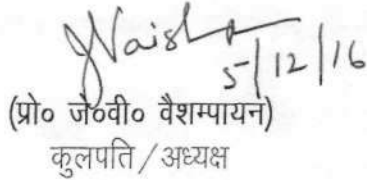 5/12/16
(प्रो० जे०वी० वैशम्पायन)
कुलपति / अध्यक्ष